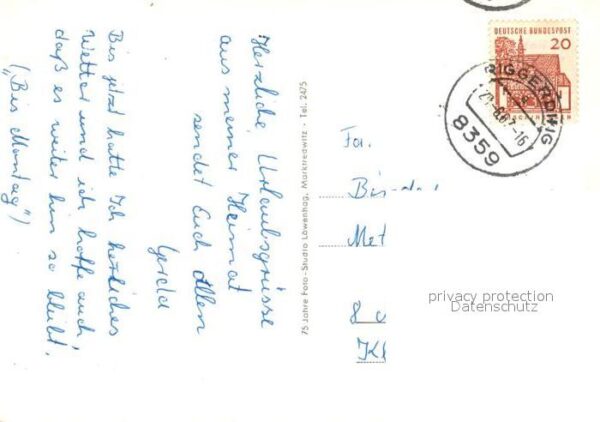 Herzliche Urlaubsgrüsse
aus meiner Heimat
sendet Euch Allen
Gerda
Bis jetzt hatte Ich herrliches
Wetter und ich hoffe auch,
daß es weiter hin so bleibt.
("Bis Montag")
75 Jahre Foto-Studio Löwenhag, Marktredwitz - Tel. 2475
DEUTSCHE BUNDESPOST
20
RIGGERDING
8359
Fa.
Met
8
privacy protection
Datenschutz